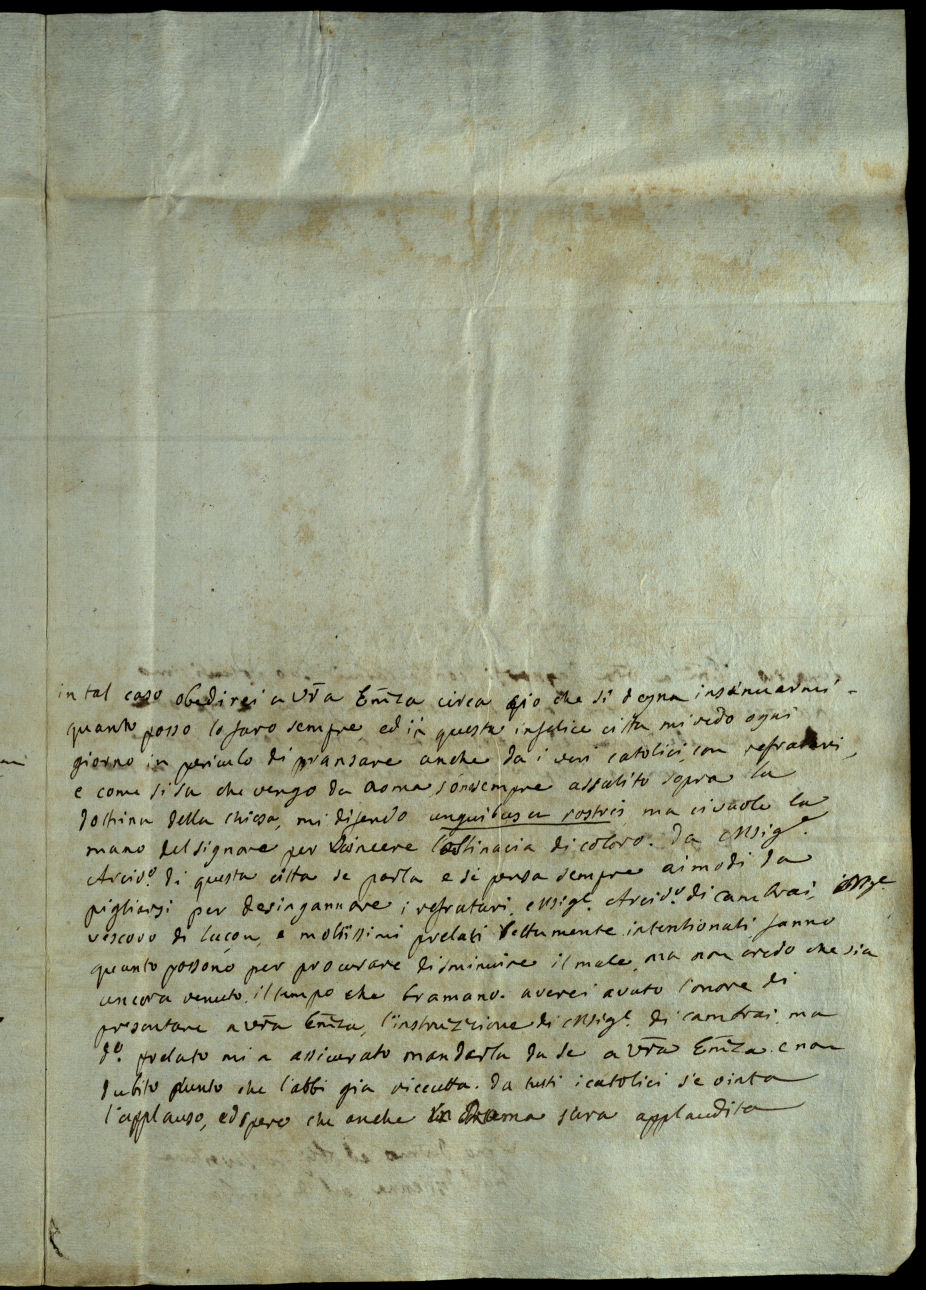 in tal caso obedirei a Vr̃a Em̃za circa ciò che si degna insinuarmi -
quanto posso lo faro sempre ed in questa infelice citta mi vedo ogni
giorno in periculo di pransare anche da i veri catolici, con refratari,
e come si sa che vengo da Roma, son sempre assalito sopra la
dottrina della chiesa, mi difendo unguibus et rostris ma ci vuole la
mano del signore per vincere l'ostinacia di coloro. Da Msig.e
Arcivo. di questa citta se parla e se pensa sempre ai modi da
pigliarsi per desingannare i refratari. Msige. Arcivo. di Cambrai, Msige
vescovo di luçon, e moltissimi prelati rettamente intentionati fanno
quanto possono per procurare di sminuire il male, ma non credo che sia
ancora venuto il tempo che bramano. averei avuto l'onore di
presentare a Vr̃a Em̃za, l'instruzzione di Msige. di Cambrai, ma
do. prelato mi a assicurato mandarla da se a Vr̃a Em̃za. e non
dubito punto che l'abbi gia riceuta. da tutti i catolici s'e
l'applauso, ed spero che anche in Roma sara applaudita